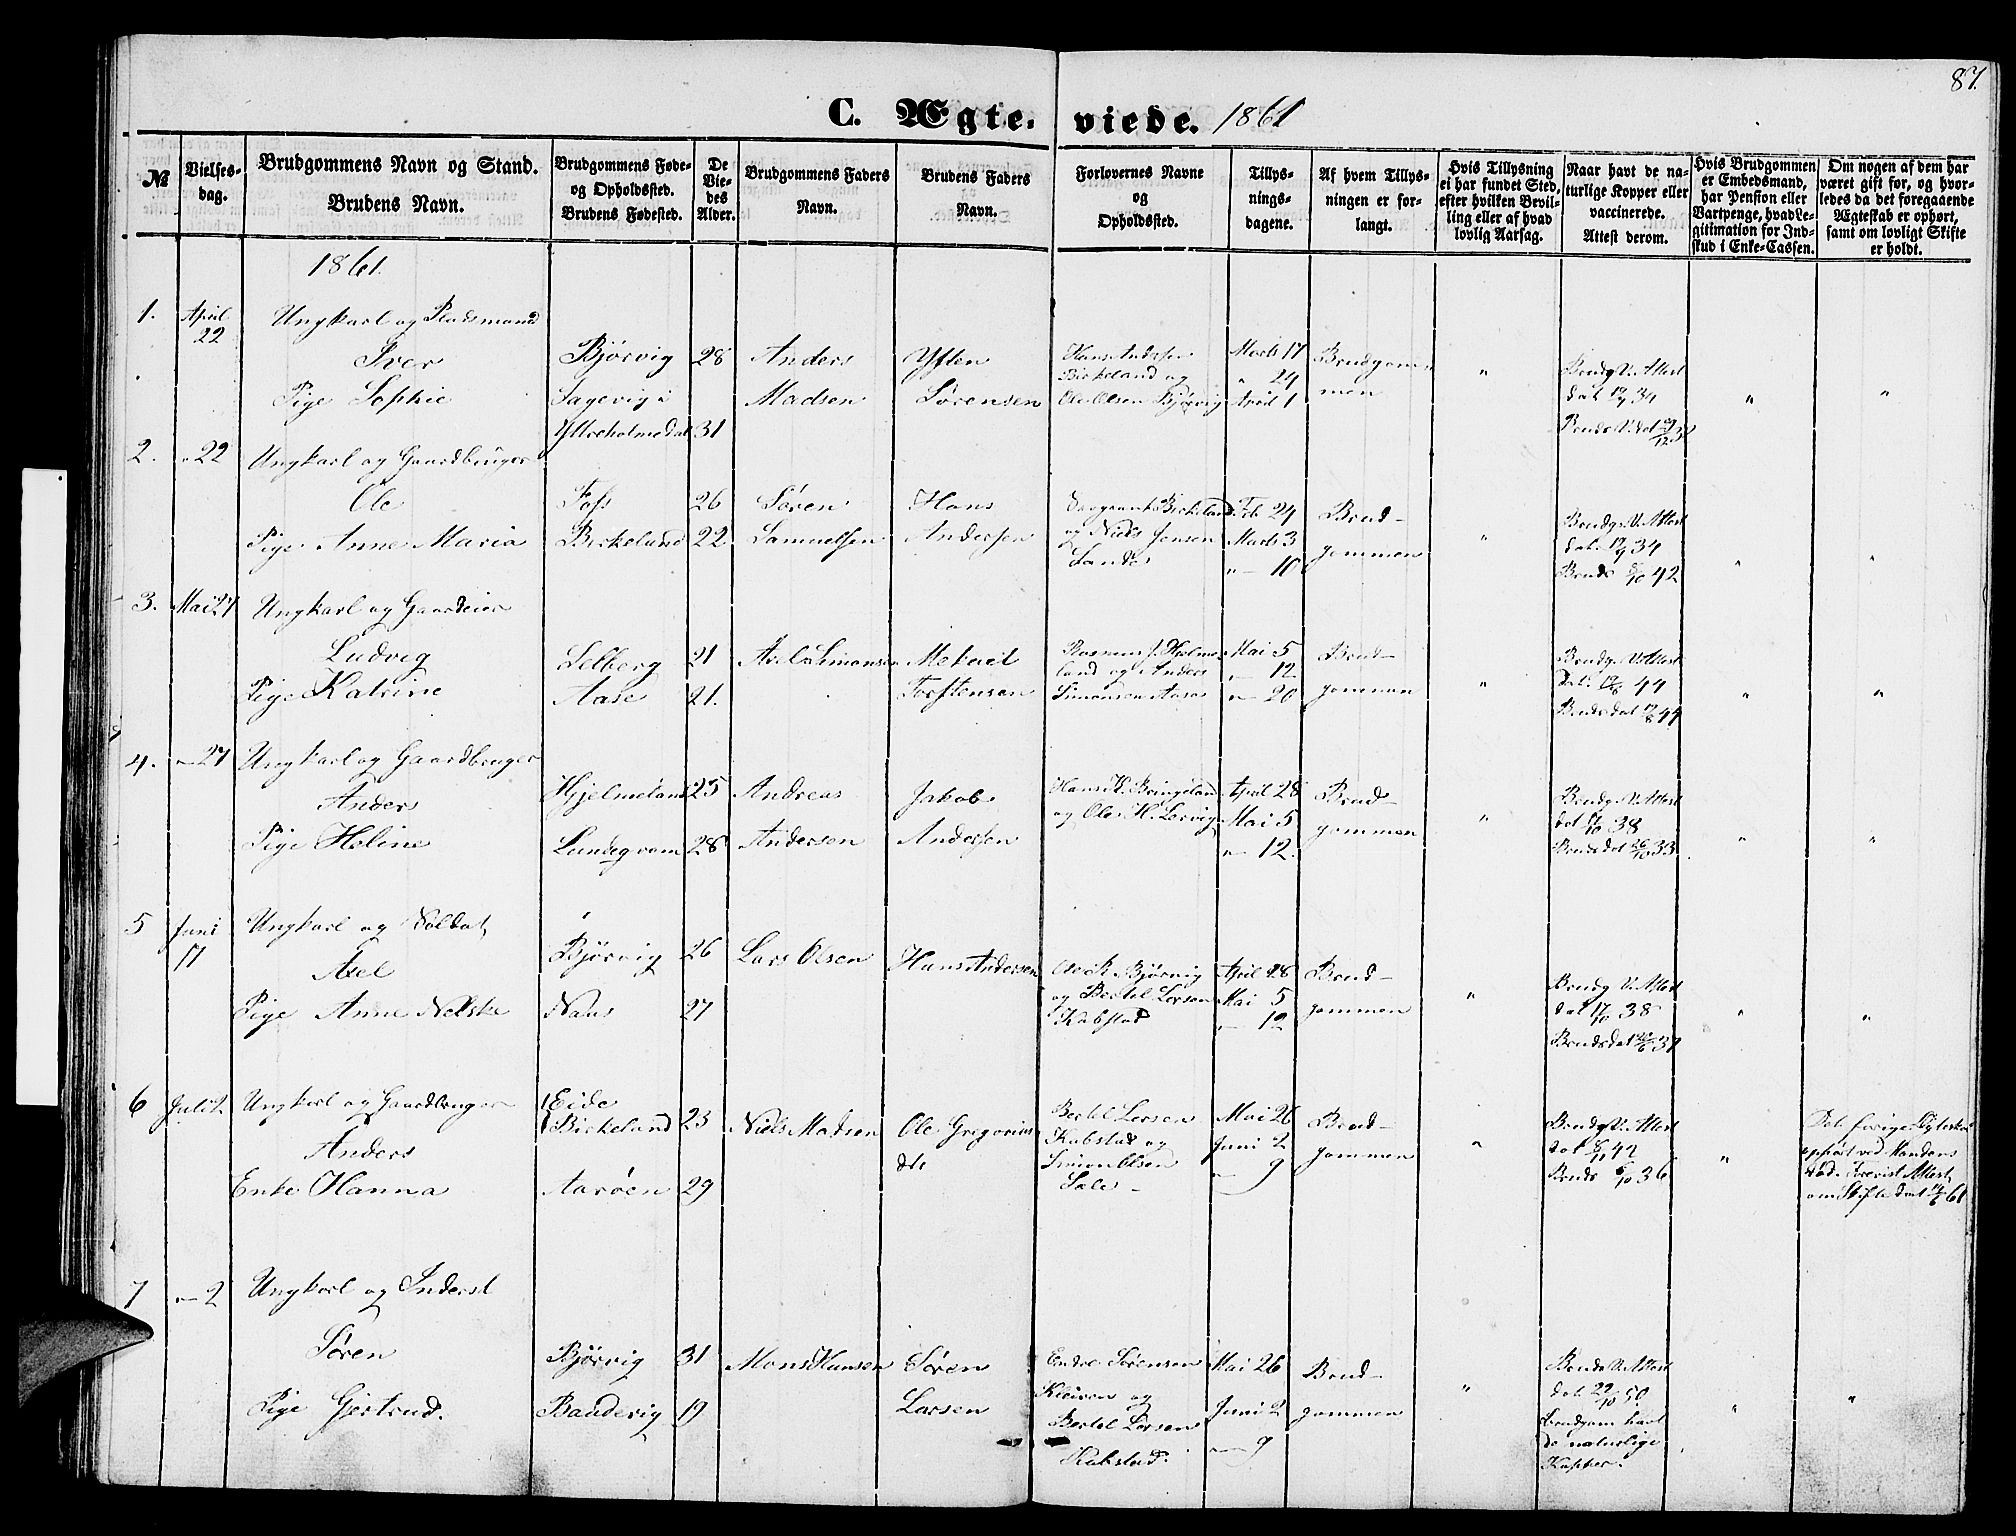 87.
C. Ægteviede. 1861
№
Vielsesdag.
Brudgommens Navn og Stand.
Brudens Navn.
Brudgommens Føde-
og Opholdssted.
Brudens Fødested.
De
Vie-
des
Alder.
Brudgommens Faders
Navn.
Brudens Faders
Navn.
Forlovernes Navne
og
Opholdssted.
Tillys-
nings-
dagene.
Af hvem Tillys-
ningen er for-
langt.
Hvis Tillysning
ei har fundet Sted,
efter hvilken Bevil-
ling eller af hvad
lovlig Aarsag.
Naar havt de na-
turlige Kopper eller
vaccinerede.
Attest derom.
Hvis Brudgommen
er Embedsmand,
har Pension eller
Vartpenge, hvad Le-
gitimation for Ind-
skud i Enke-Cassen.
Om nogen af dem har
været gift før, og hvor-
ledes da det foregaaende
Ægteskab er ophørt,
samt om lovligt Skifte
er holdt.
1861.
1. April 22 Ungkarl og Pladsmand
Iver Bjørvig 28 Anders Madsen
Pige Sophie Sagevig i Ytreholmedal 31 Sørensen
Hans Andersen
Birkeland og
Ole Olsen Bjørvig
Marts 17
" 24
April 1
Brudgommen
"
Brudg. V. Attest
dat. 34
"
"
2. " 22 Ungkarl og Gaardbruger
Ole Foss 26 Søren Samuelsen
Pige Anne Maria Birkeland 22 Hans Andersen
Birkeland
og Niels Jensen
Sande
Feb 24
Marts 3
" 10
Brud-
gommen
"
Brudg. V. Attest
dat. 34
Bruds 42
"
"
3. Mai 27 Ungkarl og Gaardeier
Ludvig Selberg 21 Axel Simonsen
Pige Katrine Aase 21. Mekael Torstensen
Rasmus J. Hjelme-
land og Anders
Simonsen Aase
Mai 5
" 12
" 20
Brud-
gommen
"
Brudg. V. Attest
dat. 44
Bruds dat 44
"
"
4. " 27 Ungkarl og Gaardbruger
Anders Hjelmeland 25 Andreas Andersen
Pige Heline Lundegrom 28 Jakob Andersen
Hans H. Bringeland
og Ole H. Lervig
April 28
Mai 5
" 12.
Brud-
gommen
"
Brudg. V. Attest
dat 38
Bruds dat 33
"
"
5 Juni 17 Ungkarl og Soldat
Axel Bjørvig 26 Lars Olsen
Pige Anne Nelske Naus 27 Hans Andersen
Ole R. Bjørvig
og Bertel Larsen
Kobstad
April 28
Mai 5
" 12
Brud-
gommen
"
Brudg V. Attest
dat 38
Bruds dat 37
"
"
6 Juli 2 Ungkarl og Gaardbruger
Anders Eide Birkeland 23 Niels Madsen
Enke Hanna Aarøen 29 Ole Gregorius
Bertel Larsen
Kobstad og
Simon Olsen
Sale
Mai 26
Juni 2
" 9
Brud-
gommen
"
Brudg V. Attest
dat 42
Bruds 36
"
Det forige Ægteskab
ophørt ved Mandens
Død. Forevist Attest
om Skifte dat 61
7 " 2 Ungkarl og Inderst
Søren Bjørvig 31 Mons Hansen
Pige Gjertrud. Bandevig 19 Søren Larsen
Endre Sørensen
Kleiven og
Bertel Larsen
Kobstad.
Mai 26
Juni 2
" 9
Brud-
gommen
"
Bruds V. Attest
dat 50.
Brudgom havt
de naturlige
Kopper.
"
"